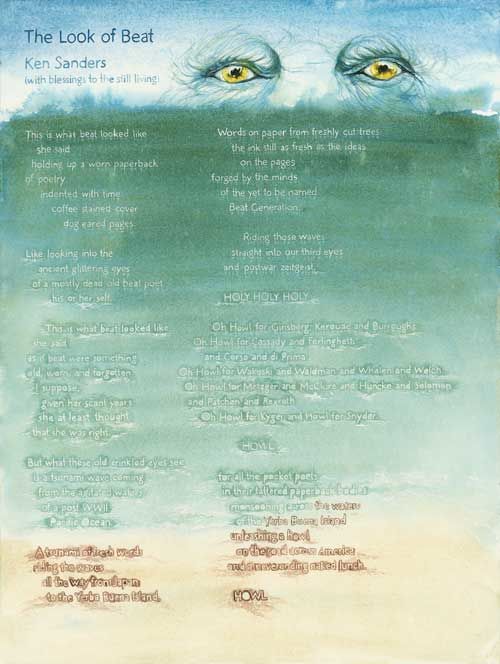 The Look of Beat
Ken Sanders
(with blessings to the still living)
This is what beat looked like
she said
holding up a worn paperback
of poetry
indented with time
coffee stained cover
dog eared pages.
Like looking into the
ancient glittering eyes
of a mostly dead old beat poet
his or her self.
This is what beat looked like
she said
as if beat were something
old, worn, and forgotten
I suppose,
given her scant years
she at least thought
that she was right.
But what these old crinkled eyes see
is a tsunami wave coming
from the agitated waters
of a post WWII
Pacific Ocean.
A tsunami of fresh words
riding the waves
all the way from Japan
to the Yerba Buena Island.
Words on paper from freshly cut trees
the ink still as fresh as the ideas
on the pages
forged by the minds
of the yet to be named
Beat Generation.
Riding those waves
straight into our third eyes
and postwar zeitgeist.
HOLY HOLY HOLY
Oh Howl for Ginsberg, Kerouac and Burroughs.
Oh Howl for Cassady and Ferlinghetti
and Corso and di Prima
Oh Howl for Wakoski and Waldman and Whalen and Welch.
Oh Howl for Metzger and McClure and Huncke and Solomon
and Patchen and Rexroth
Oh Howl for Kyger and Howl for Snyder.
HOWL
for all the pocket poets
in their tattered paperback bodies
monsooning across the waters
of the Yerba Buena Island
unleashing a howl
on the road across America
and a neverending naked lunch.
HOWL